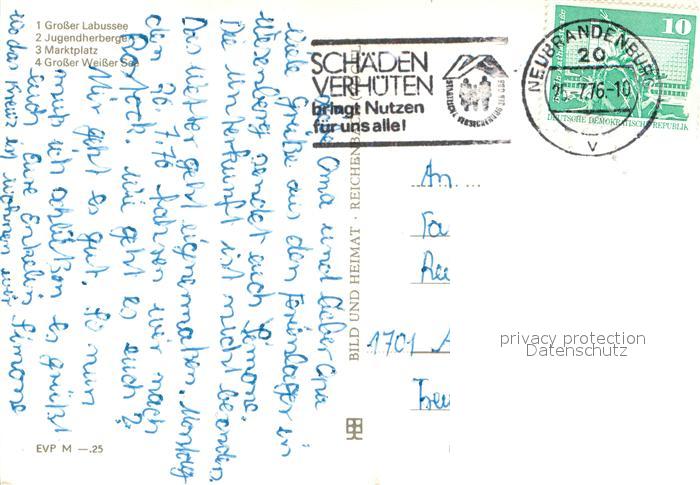 1 Großer Labussee
2 Jugendherberge
3 Marktplatz
4 Großer Weißer See
SCHÄDEN
VERHÜTEN
bringt Nutzen
für uns alle!
STAATLICHE VERSICHERUNG DER DDR
NEUBRANDENBURG
20
-7.76-10
v
10
DEUTSCHE DEMOKRATISCHE REPUBLIK
Liebe Oma und lieber Opa
Viele Grüße aus dem Ferienlager in
Wesenberg sendet euch Simone.
Die Unterkunft ist nicht besonders.
Das Wetter geht einigermaßen. Montag
den 26.7.76 fahren wir nach
Rostock. Wie geht es euch?
Mir geht es gut. So nun
muß ich schließen es grüßt
euch Eure Enkelin Simone
wo das Kreuz ist wohnen wir
BILD UND HEIMAT · REICHENBACH
An
Fa
1701
EVP M —.25
privacy protection
Datenschutz